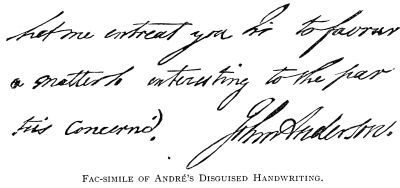 Let me entreat you Sir to favour
a matter so interesting to the par
ties Concern'd. John Anderson.
FAC-SIMILE OF ANDRÉ'S DISGUISED HANDWRITING.